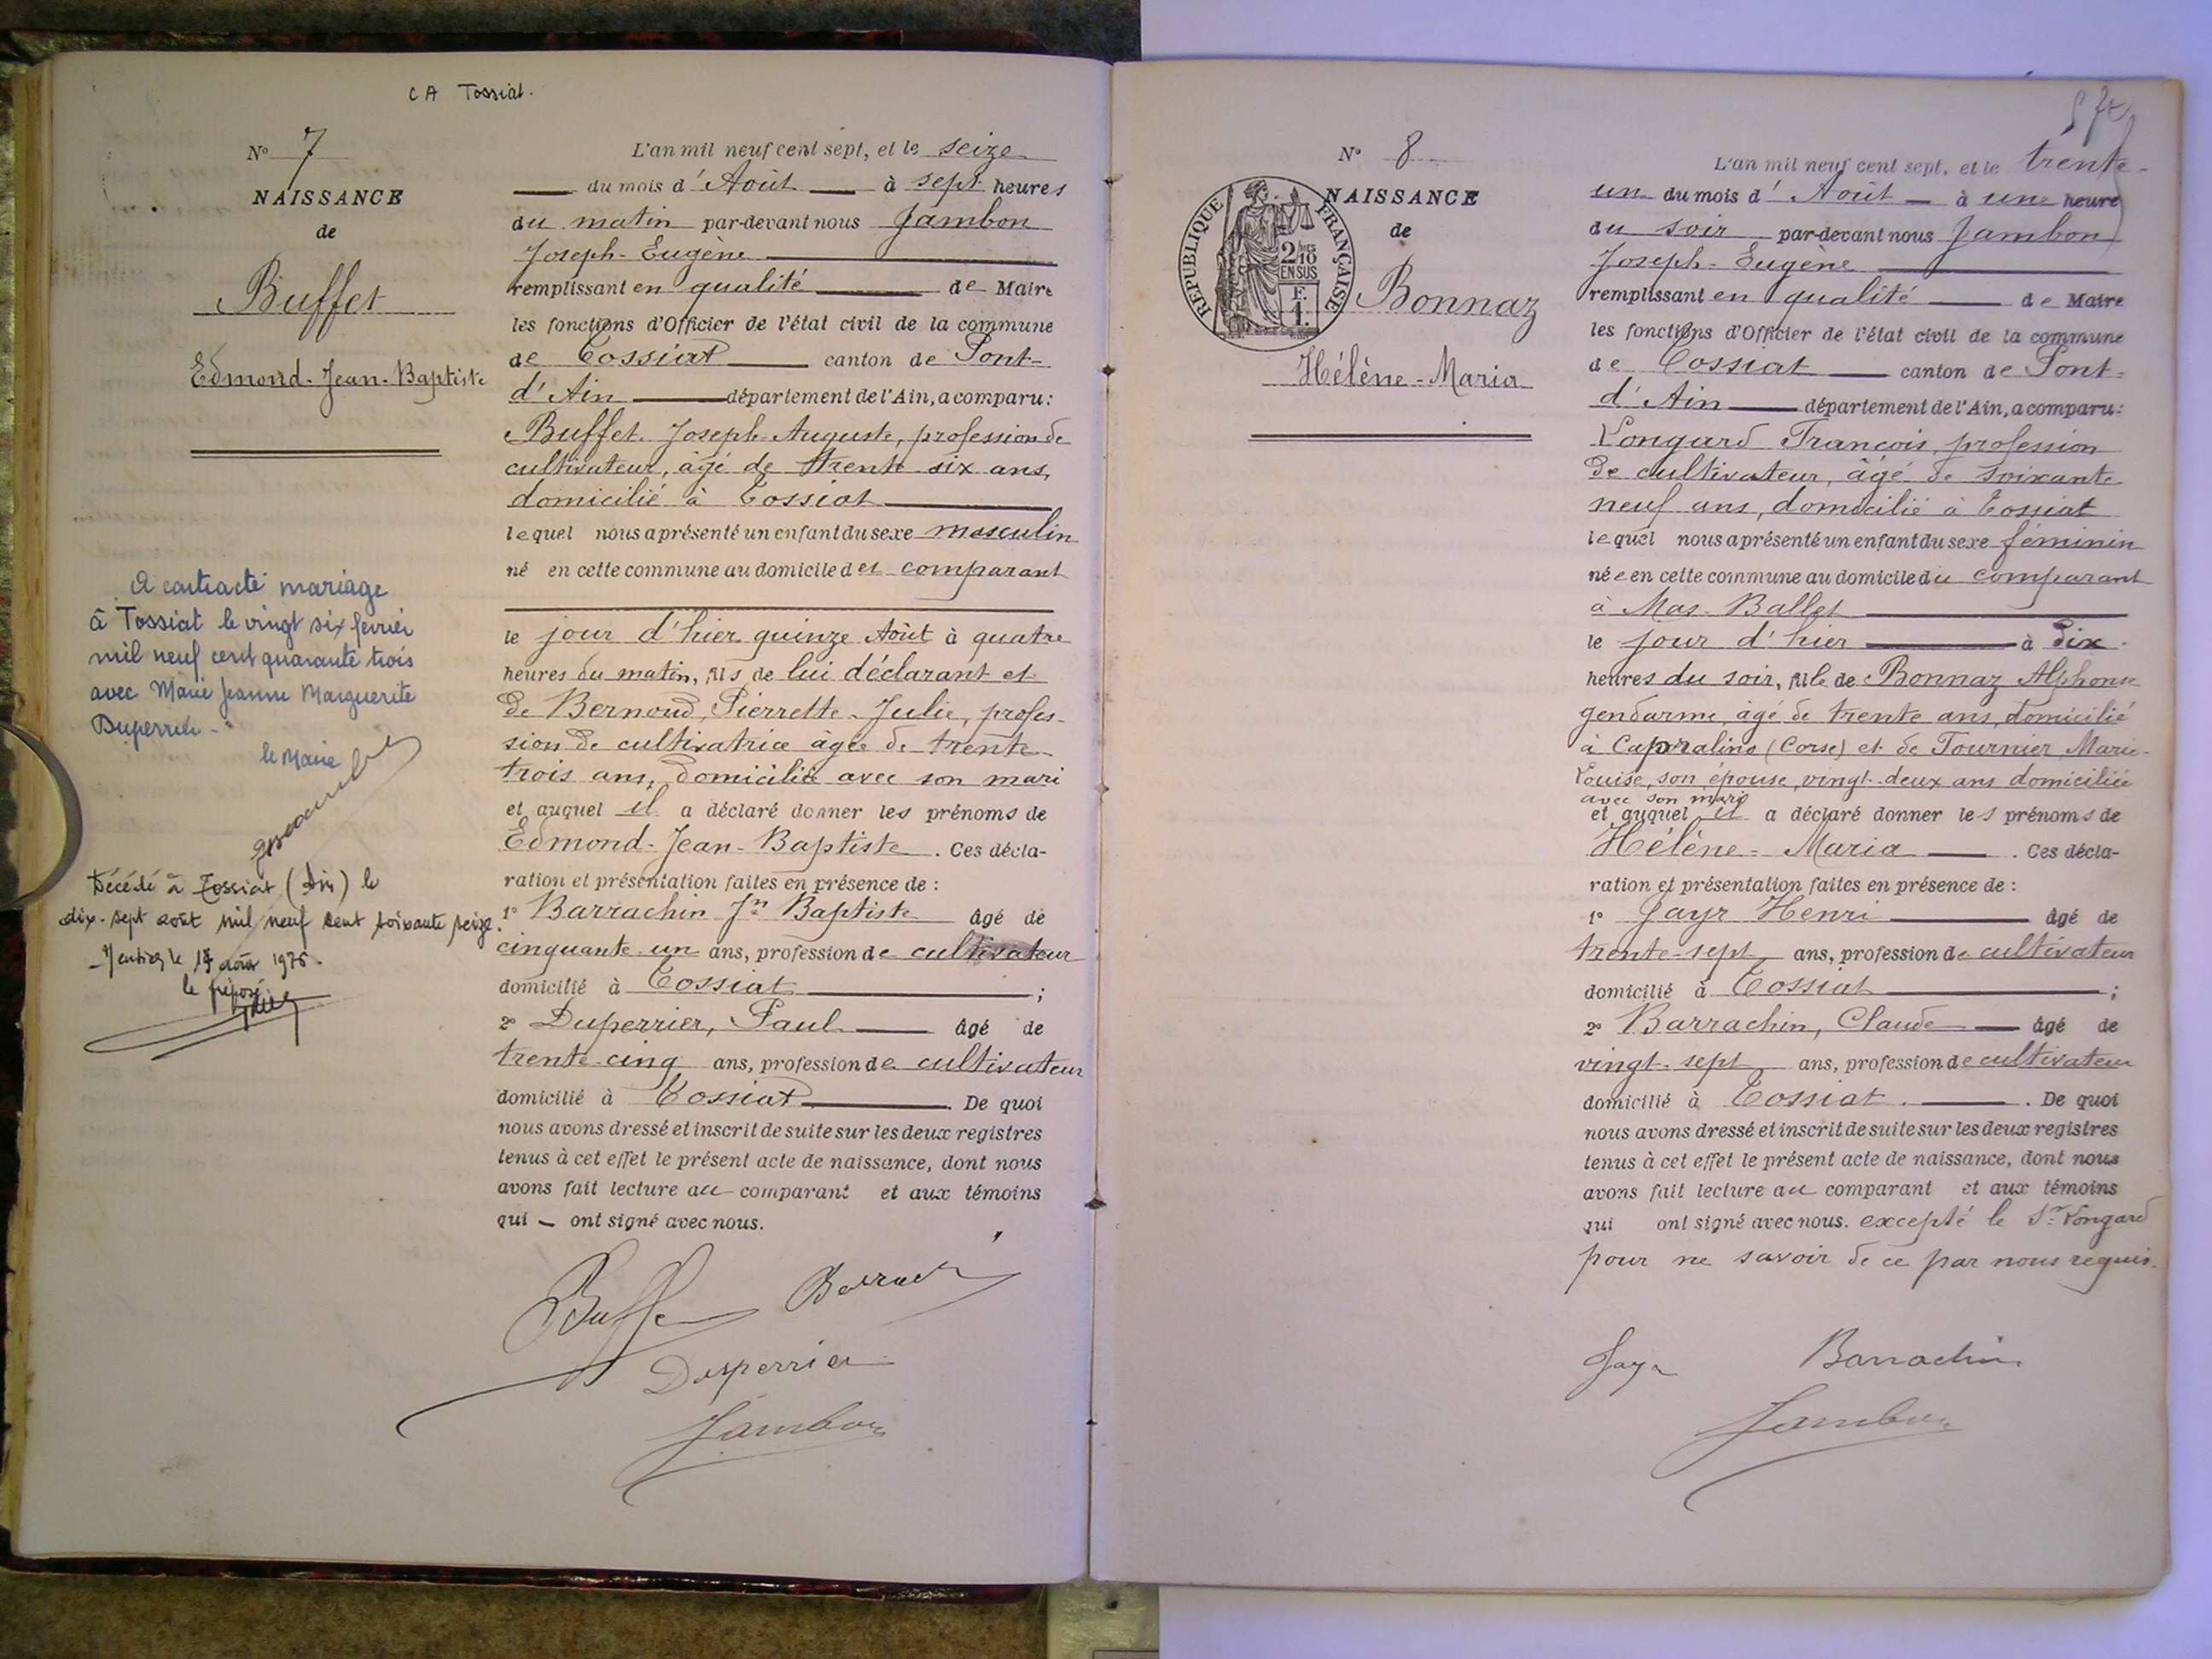 CA Tossiat.
N° 7
NAISSANCE
de
Buffet
Edmond-Jean-Baptiste
A contracté mariage
à Tossiat le vingt six février
mil neuf cent quarante trois
avec Marie Jeanne Marguerite
Duperrier
le Maire
Décédé à Tossiat (Ain) le
dix-sept août mil neuf cent soixante seize.
Mention le 17 août 1976.
le préposé
L'an mil neuf cent sept, et le seize
du mois d'Août à sept heures
du matin par-devant nous Jambon
Joseph-Eugène
remplissant en qualité de Maire
les fonctions d'Officier de l'état civil de la commune
de Tossiat canton de Pont-
d'Ain département de l'Ain, a comparu:
Buffet Joseph-Auguste, profession de
cultivateur, âgé de trente six ans,
domicilié à Tossiat
lequel nous a présenté un enfant du sexe masculin
né en cette commune au domicile des comparant
le jour d'hier quinze Août à quatre
heures du matin, fils de lui déclarant et
de Bernoud, Pierrette-Julie, profes-
sion de cultivatrice âgée de trente
trois ans, domicilié avec son mari
et auquel il a déclaré donner les prénoms de
Edmond-Jean-Baptiste. Ces décla-
ration et présentation faites en présence de :
1° Barrachin Jn Baptiste âgé de
cinquante un ans, profession de cultivateur
domicilié à Tossiat ;
2° Duperrier, Paul âgé de
trente-cinq ans, profession de cultivateur
domicilié à Tossiat. De quoi
nous avons dressé et inscrit de suite sur les deux registres
tenus à cet effet le présent acte de naissance, dont nous
avons fait lecture au comparant et aux témoins
qui ont signé avec nous.
Buffe Barrach
Duperrier
Jambon
N° 8
NAISSANCE
de
RÉPUBLIQUE FRANÇAISE
2/10
EN SUS
F.
1.
Bonnaz
Hélène-Maria
L'an mil neuf cent sept, et le trente-
un du mois d'Août à une heure
du soir par-devant nous Jambon
Joseph-Eugène
remplissant en qualité de Maire
les fonctions d'Officier de l'état civil de la commune
de Tossiat canton de Pont-
d'Ain département de l'Ain, a comparu:
Longard François, profession
de cultivateur, âgé de soixante
neuf ans, domicilié à Tossiat
lequel nous a présenté un enfant du sexe féminin
née en cette commune au domicile du comparant
à Mas-Ballet
le jour d'hier à dix
heures du soir, fille de Bonnaz Alphonse
gendarme, âgé de trente ans, domicilié
à Capralino (Corse) et de Tournier, Marie-
Louise, son épouse, vingt-deux ans domiciliée
avec son mari
et auquel il a déclaré donner les prénoms de
Hélène-Maria. Ces décla-
ration et présentation faites en présence de :
1° Jayr Henri âgé de
trente-sept ans, profession de cultivateur
domicilié à Tossiat ;
2° Barrachin, Claude âgé de
vingt-sept ans, profession de cultivateur
domicilié à Tossiat. De quoi
nous avons dressé et inscrit de suite sur les deux registres
tenus à cet effet le présent acte de naissance, dont nous
avons fait lecture au comparant et aux témoins
qui ont signé avec nous. excepté le Sr Longard
pour ne savoir de ce par nous requis.
Jayr Barrachin
Jambon